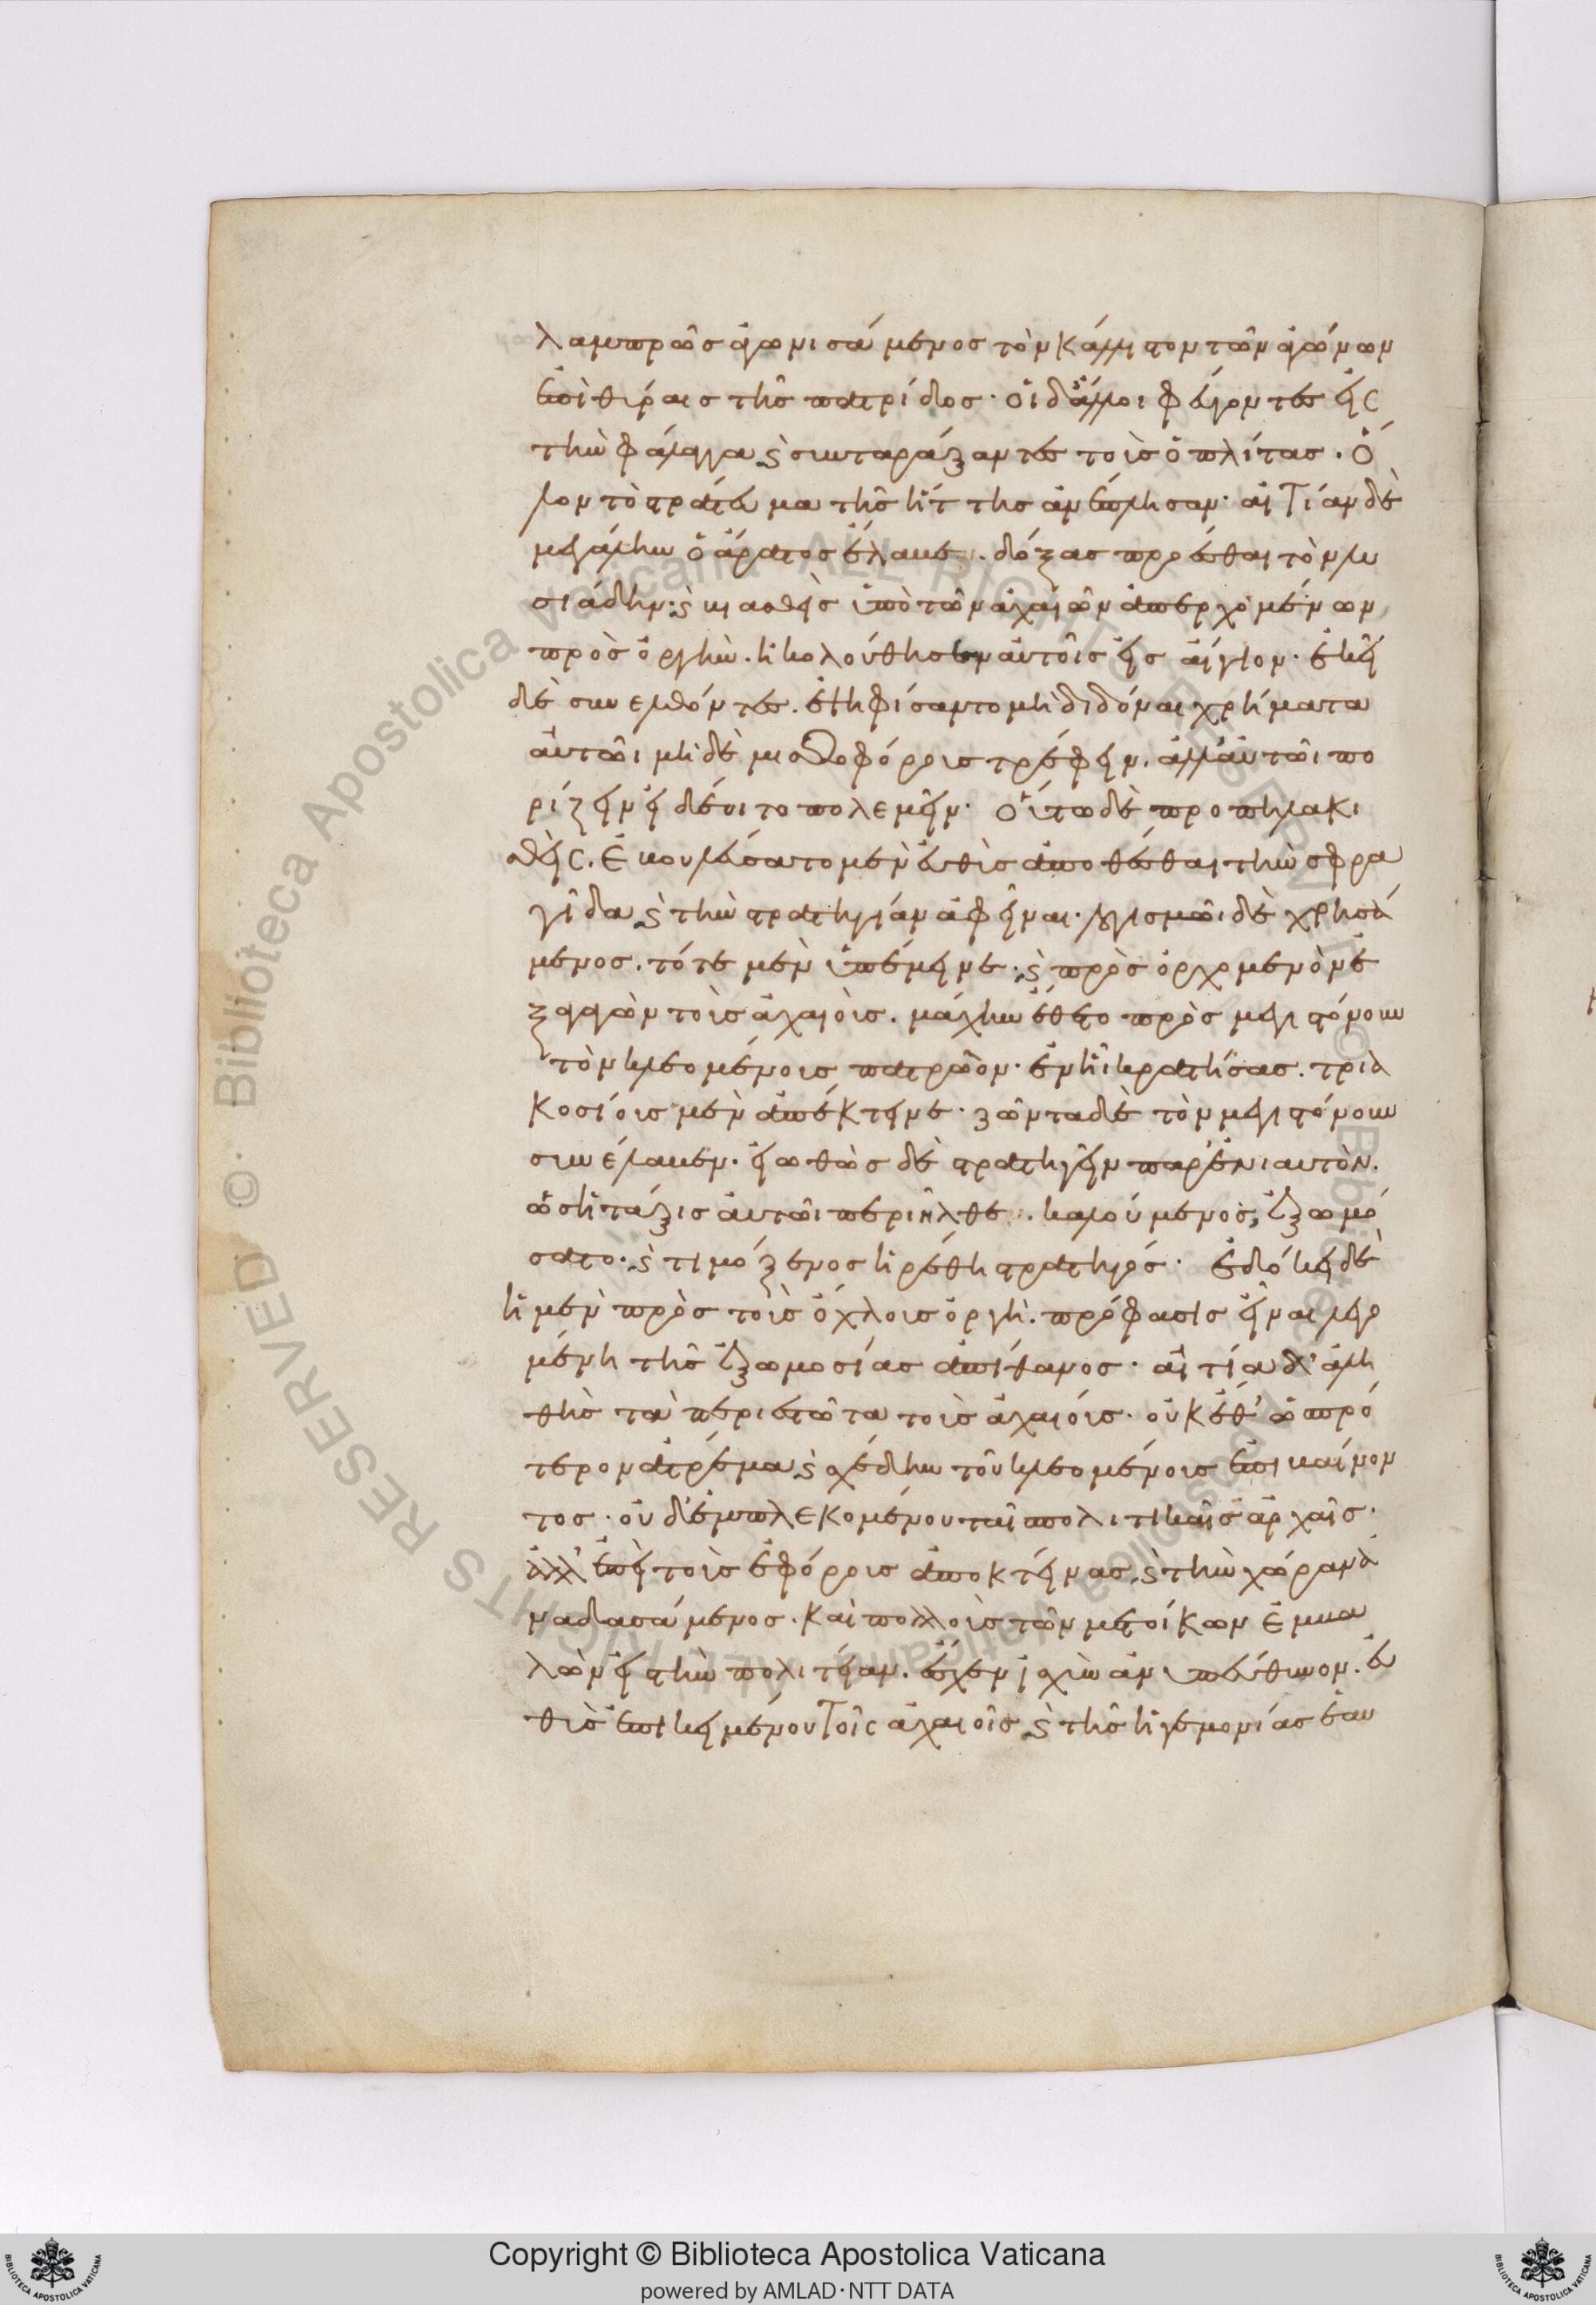 λαμπρῶς ἀγωνισάμενος τὸν κάλλιστον τῶν ἀγώνων
ἐπὶ θύραις τῆς πατρίδος· οἱ δ' ἄλλοι φεύγοντες εἰς
τὴν φάλαγγα καὶ συνταράξαντες τοὺς ὁπλίτας. ὅ
λον τὸ στράτευμα τῆς ἥττης ἀνέπλησαν· αἰτίαν δὲ
μεγάλην ὁ ἄρατος ἔλαβε. δόξας προέσθαι τὸν λυ
σιάδην· καὶ βιασθεὶς ὑπὸ τῶν ἀχαιῶν ἀπερχομένων
πρὸς ὀργὴν. ἠκολούθησεν αὐτοῖς εἰς αἴγιον· ἐκεῖ
δὲ συνελθόντες. ἐψηφίσαντο μὴ διδόναι χρήματα
αὐτῶι μὴ δὲ μισθοφόρους τρέφειν. ἀλλ' αὑτῶι πο
ρίζειν εἰ δέοιτο πολεμεῖν· οὕτω δὲ προπηλακι
σθεὶς. ἐβουλεύσατο μὲν εὐθὺς ἀποθέσθαι τὴν σφρα
γῖδα καὶ τὴν στρατηγίαν ἀφεῖναι· λογισμῶι δὲ χρησά
μενος. τότε μὲν ὑπέμεινε· καὶ πρὸς ὀρχομενὸν ἐ
ξαγαγὼν τοὺς ἀχαιοὺς. μάχην ἔθετο πρὸς μεγιστόνουν
τὸν κλεομένους πατρῶον· ἐν ἧι κρατήσας. τρια
κοσίους μὲν ἀπέκτεινε· ζῶντα δὲ τὸν μεγιστόνουν
συνέλαβεν. εἰωθὼς δὲ στρατηγεῖν παρ' ἐνιαυτὸν.
ὡς ἡ τάξις αὐτῶι περιῆλθε. καλούμενος, ἐξωμό
σατο· καὶ τιμόξενος ἡιρέθη στρατηγός· ἐδόκει δὲ
ἡ μὲν πρὸς τοὺς ὄχλους ὀργὴ. πρόφασις εἶναι λεγο
μένη τῆς ἐξωμοσίας ἀπίθανος· αἰτία δ' ἀλη
θὴς τὰ περιεστῶτα τοὺς ἀχαιούς· οὐκ ἔθ' ὡς πρό
τερον ἀτρέμα καὶ σχέδην τοῦ κλεομένους ἐπιβαίνον
τος· οὐδ' ἐμπλεκομένου ταῖς πολιτικαῖς ἀρχαῖς·
ἀλλ' ἐπεὶ τοὺς ἐφόρους ἀποκτείνας καὶ τὴν χώραν ἀ
ναδασάμενος. καὶ πολλοὺς τῶν μετοίκων ἐμβα
λὼν εἰς τὴν πολιτείαν. ἔσχεν ἰσχὺν ἀνυπεύθυνον. εὐ
θὺς ἐπικειμένου τοῖς ἀχαιοῖς καὶ τῆς ἡγεμονίας ἑαυ